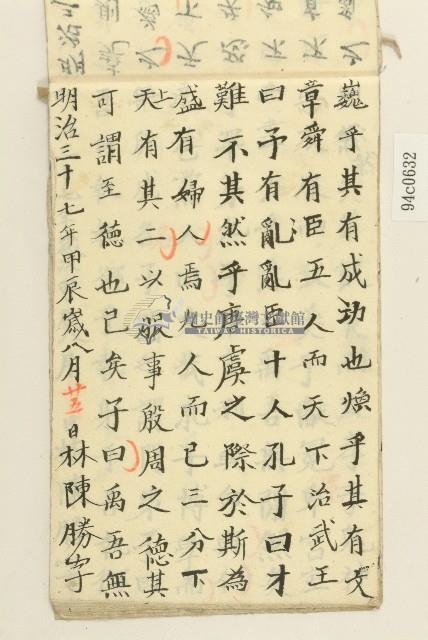 巍乎其有成功也煥乎其有文
章舜有臣五人而天下治武王
曰予有亂亂臣十人孔子曰才
難不其然乎唐虞之際於斯為
盛有婦人焉九人而已三分下
天上有其二以服事殷周之德其
可謂至德也已矣子曰禹吾無
明治三十七年甲辰歲八月廿五日林陳勝字
國史館臺灣文獻館
TAIWAN HISTORICA
94c0632